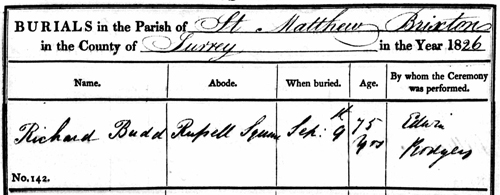 BURIALS in the Parish of St Matthew Brixton
in the County of Surrey in the Year 1826
Name. Abode. When buried. Age. By whom the Ceremony was performed.
Richard Budd Russell Square Sep: 9th 75 yrs Edwin Rodgers
No. 142.